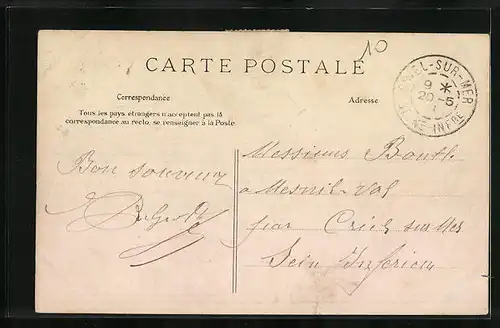 10
CARTE POSTALE
CRIEL-SUR-MER
9 *
20-5
Correspondance
Adresse
Tous les pays étrangers n'acceptent pas la
correspondance au recto, se renseigner à la Poste.
Bon souvenir
Messieurs
a Mesnil-Val
par Criel sur Mer
Sein Inferieu